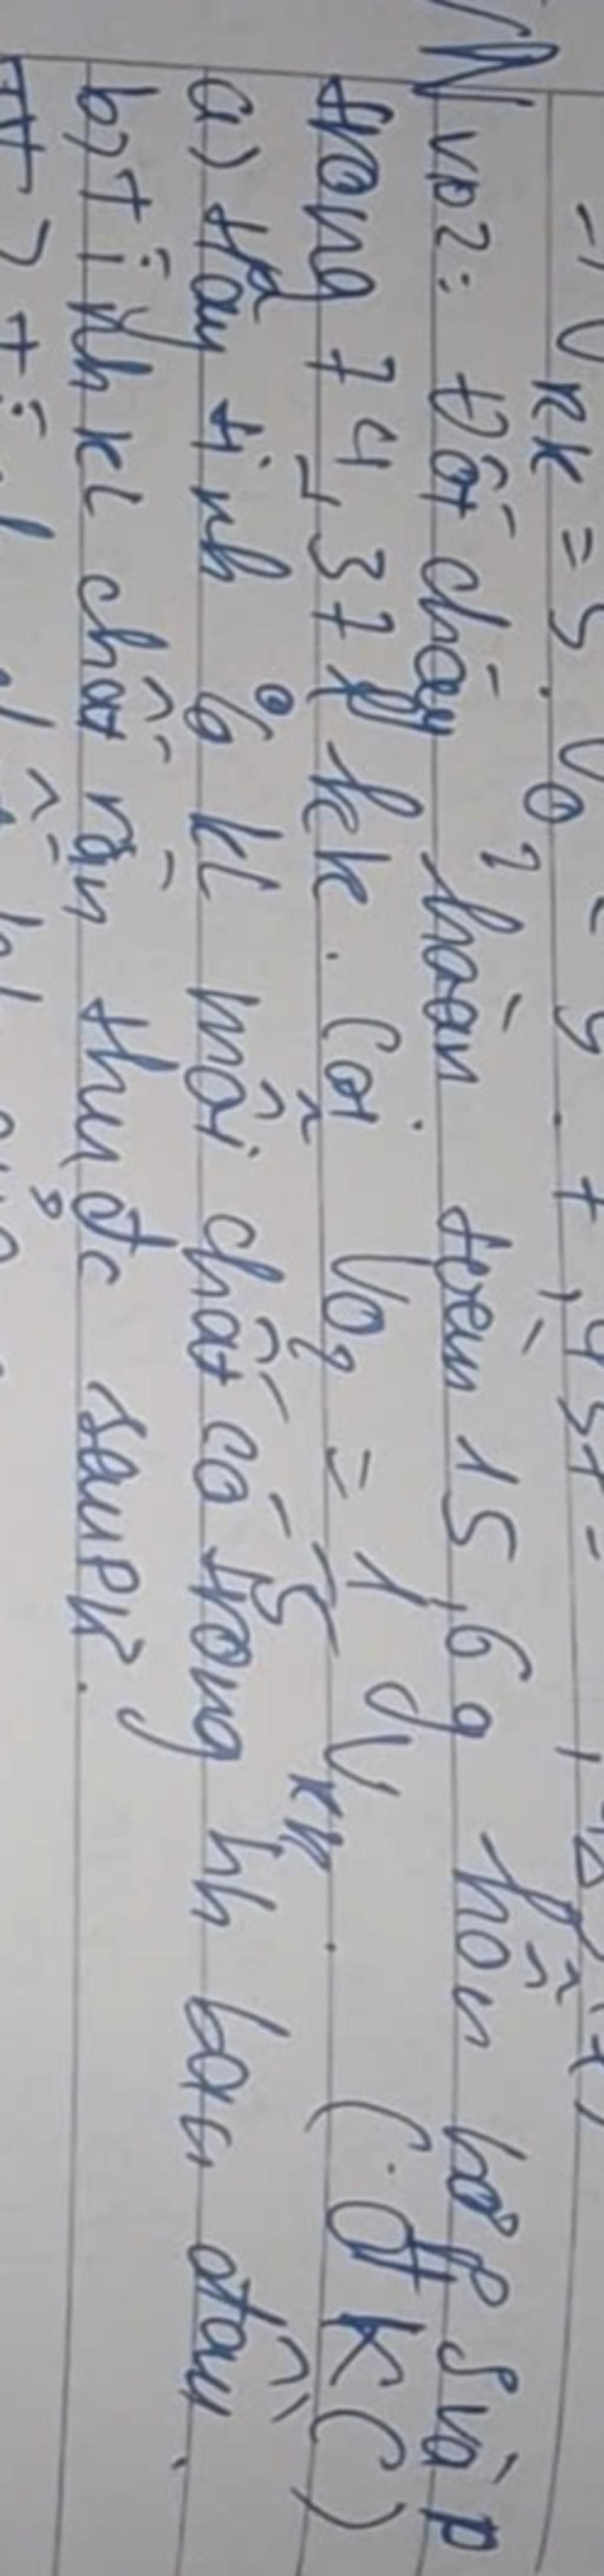 kk = 5. VO2 =
VD2: Đốt cháy hoàn toàn 15,6g hỗn hợp S và P
trong 74,37 l kk. Coi VO2 = 1/5 Vkk. (ĐKC)
a) Hãy tính % kl mỗi chất có trong hh ban đầu.
b) Tính kl chất rắn thu đc sau pư.